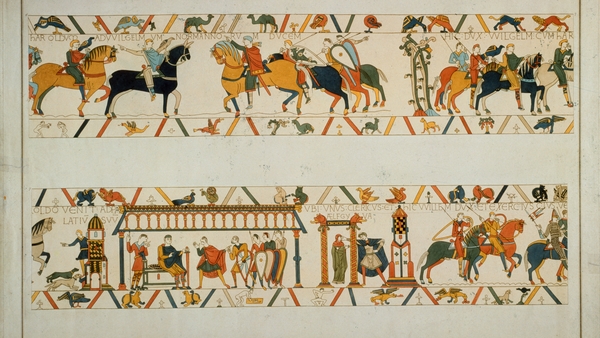 HAROLDUM AD VVILGELMUM NORMANNORUM DUCEM
HIC DUX VVILGELM CUM HAR
OLDO VENIT AD PA
LATIU SUU
UBI UNUS CLERICUS ET
ÆLFGYVA
HIC WILLEM DUX ET EXERCITUS